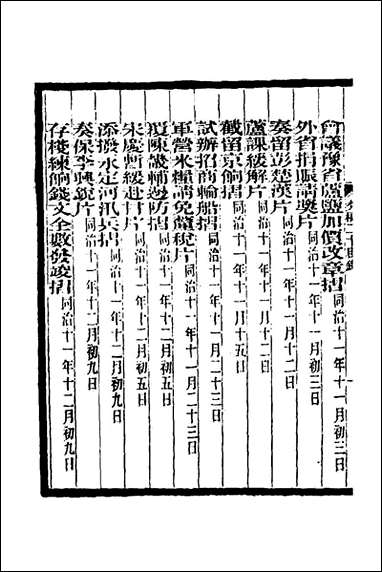 會議豫省蘆鹽加價改章摺同治十一年十一月初三日
外省捐賑請獎片同治十一年十一月初三日
奏留彭楚漢片同治十一年十一月十二日
蘆課緩解片同治十一年十一月十二日
截留京餉摺同治十一年十一月十五日
試辦招商輪船摺同治十一年十一月二十三日
軍營米糧請免釐稅片同治十一年十一月二十三日
覆陳畿輔邊防摺同治十一年十二月初五日
宋慶暫緩赴甘片同治十一年十二月初五日
添撥永定河汛兵摺同治十一年十二月初九日
奏保李興銳片同治十一年十二月初九日
存殘練餉錢文全數發竣摺同治十一年十二月初九日